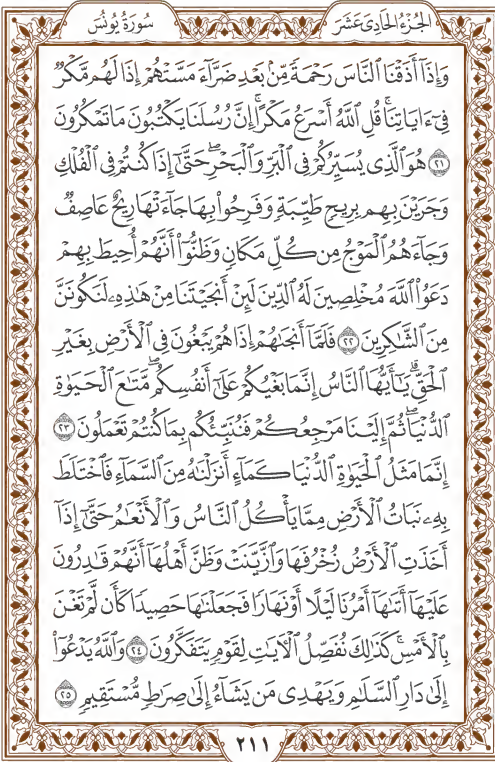 الجُزْءُ الحَادِي عَشَرَ
سُورَةُ يُونُسَ
وَإِذَآ أَذَقْنَا ٱلنَّاسَ رَحْمَةً مِّنۢ بَعْدِ ضَرَّآءَ مَسَّتْهُمْ إِذَا لَهُم مَّكْرٌ
فِىٓ ءَايَاتِنَا ۚ قُلِ ٱللَّهُ أَسْرَعُ مَكْرًا ۚ إِنَّ رُسُلَنَا يَكْتُبُونَ مَا تَمْكُرُونَ
٢١ هُوَ ٱلَّذِى يُسَيِّرُكُمْ فِى ٱلْبَرِّ وَٱلْبَحْرِ ۖ حَتَّىٰٓ إِذَا كُنتُمْ فِى ٱلْفُلْكِ
وَجَرَيْنَ بِهِم بِرِيحٍ طَيِّبَةٍ وَفَرِحُوا۟ بِهَا جَآءَتْهَا رِيحٌ عَاصِفٌ
وَجَآءَهُمُ ٱلْمَوْجُ مِن كُلِّ مَكَانٍ وَظَنُّوٓا۟ أَنَّهُمْ أُحِيطَ بِهِمْ
دَعَوُا۟ ٱللَّهَ مُخْلِصِينَ لَهُ ٱلدِّينَ لَئِنْ أَنجَيْتَنَا مِنْ هَٰذِهِۦ لَنَكُونَنَّ
مِنَ ٱلشَّٰكِرِينَ ٢٢ فَلَمَّآ أَنجَىٰهُمْ إِذَا هُمْ يَبْغُونَ فِى ٱلْأَرْضِ بِغَيْرِ
ٱلْحَقِّ ۗ يَٰٓأَيُّهَا ٱلنَّاسُ إِنَّمَا بَغْيُكُمْ عَلَىٰٓ أَنفُسِكُم ۖ مَّتَٰعَ ٱلْحَيَوٰةِ
ٱلدُّنْيَا ۖ ثُمَّ إِلَيْنَا مَرْجِعُكُمْ فَنُنَبِّئُكُم بِمَا كُنتُمْ تَعْمَلُونَ ٢٣
إِنَّمَا مَثَلُ ٱلْحَيَوٰةِ ٱلدُّنْيَا كَمَآءٍ أَنزَلْنَٰهُ مِنَ ٱلسَّمَآءِ فَٱخْتَلَطَ
بِهِۦ نَبَاتُ ٱلْأَرْضِ مِمَّا يَأْكُلُ ٱلنَّاسُ وَٱلْأَنْعَٰمُ حَتَّىٰٓ إِذَآ
أَخَذَتِ ٱلْأَرْضُ زُخْرُفَهَا وَٱزَّيَّنَتْ وَظَنَّ أَهْلُهَآ أَنَّهُمْ قَٰدِرُونَ
عَلَيْهَآ أَتَىٰهَآ أَمْرُنَا لَيْلًا أَوْ نَهَارًا فَجَعَلْنَٰهَا حَصِيدًا كَأَن لَّمْ تَغْنَ
بِٱلْأَمْسِ ۚ كَذَٰلِكَ نُفَصِّلُ ٱلْءَايَٰتِ لِقَوْمٍ يَتَفَكَّرُونَ ٢٤ وَٱللَّهُ يَدْعُوٓا۟
إِلَىٰ دَارِ ٱلسَّلَٰمِ وَيَهْدِى مَن يَشَآءُ إِلَىٰ صِرَٰطٍ مُّسْتَقِيمٍ ٢٥
٢١١